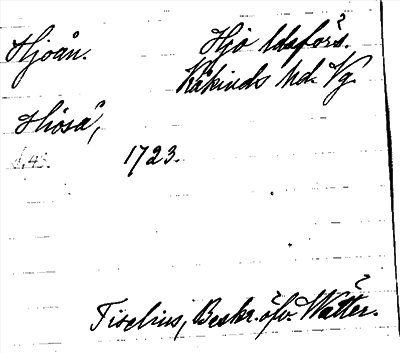 Hjoån. Hjo ldsförs.
Kåkinds hd. Vg.
Hioså,
s. 43. 1723.
Tiselius, Beskr. öfv. Wätter.